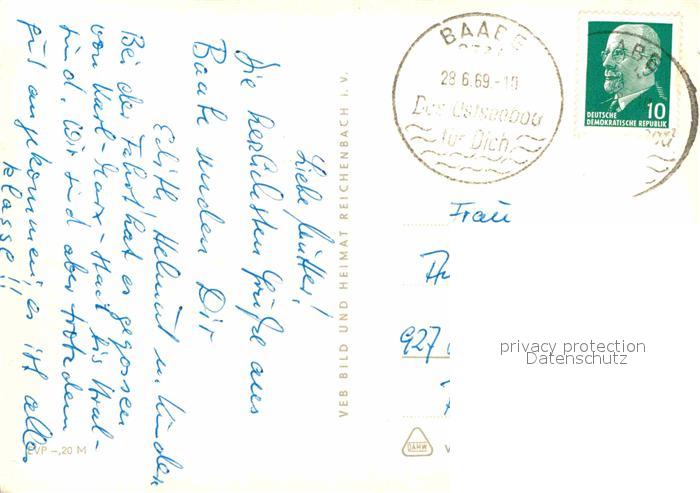 Liebe Mutter!
Die herzlichsten Grüße aus
Baabe senden Dir
Edith, Helmut u. Kinder
Bei der Fahrt hat es gegossen
von Karl-Marx-Stadt bis Stral-
sund. Wir sind aber trotzdem
gut angekommen, es ist alles
klasse!!
EVP -,20 M
VEB BILD UND HEIMAT REICHENBACH I. V.
BAABE
28.6.69.-10
Das Ostseebad
für Dich
ABE
10
DEUTSCHE
DEMOKRATISCHE REPUBLIK
Frau
927
privacy protection
Datenschutz
DAMW
V